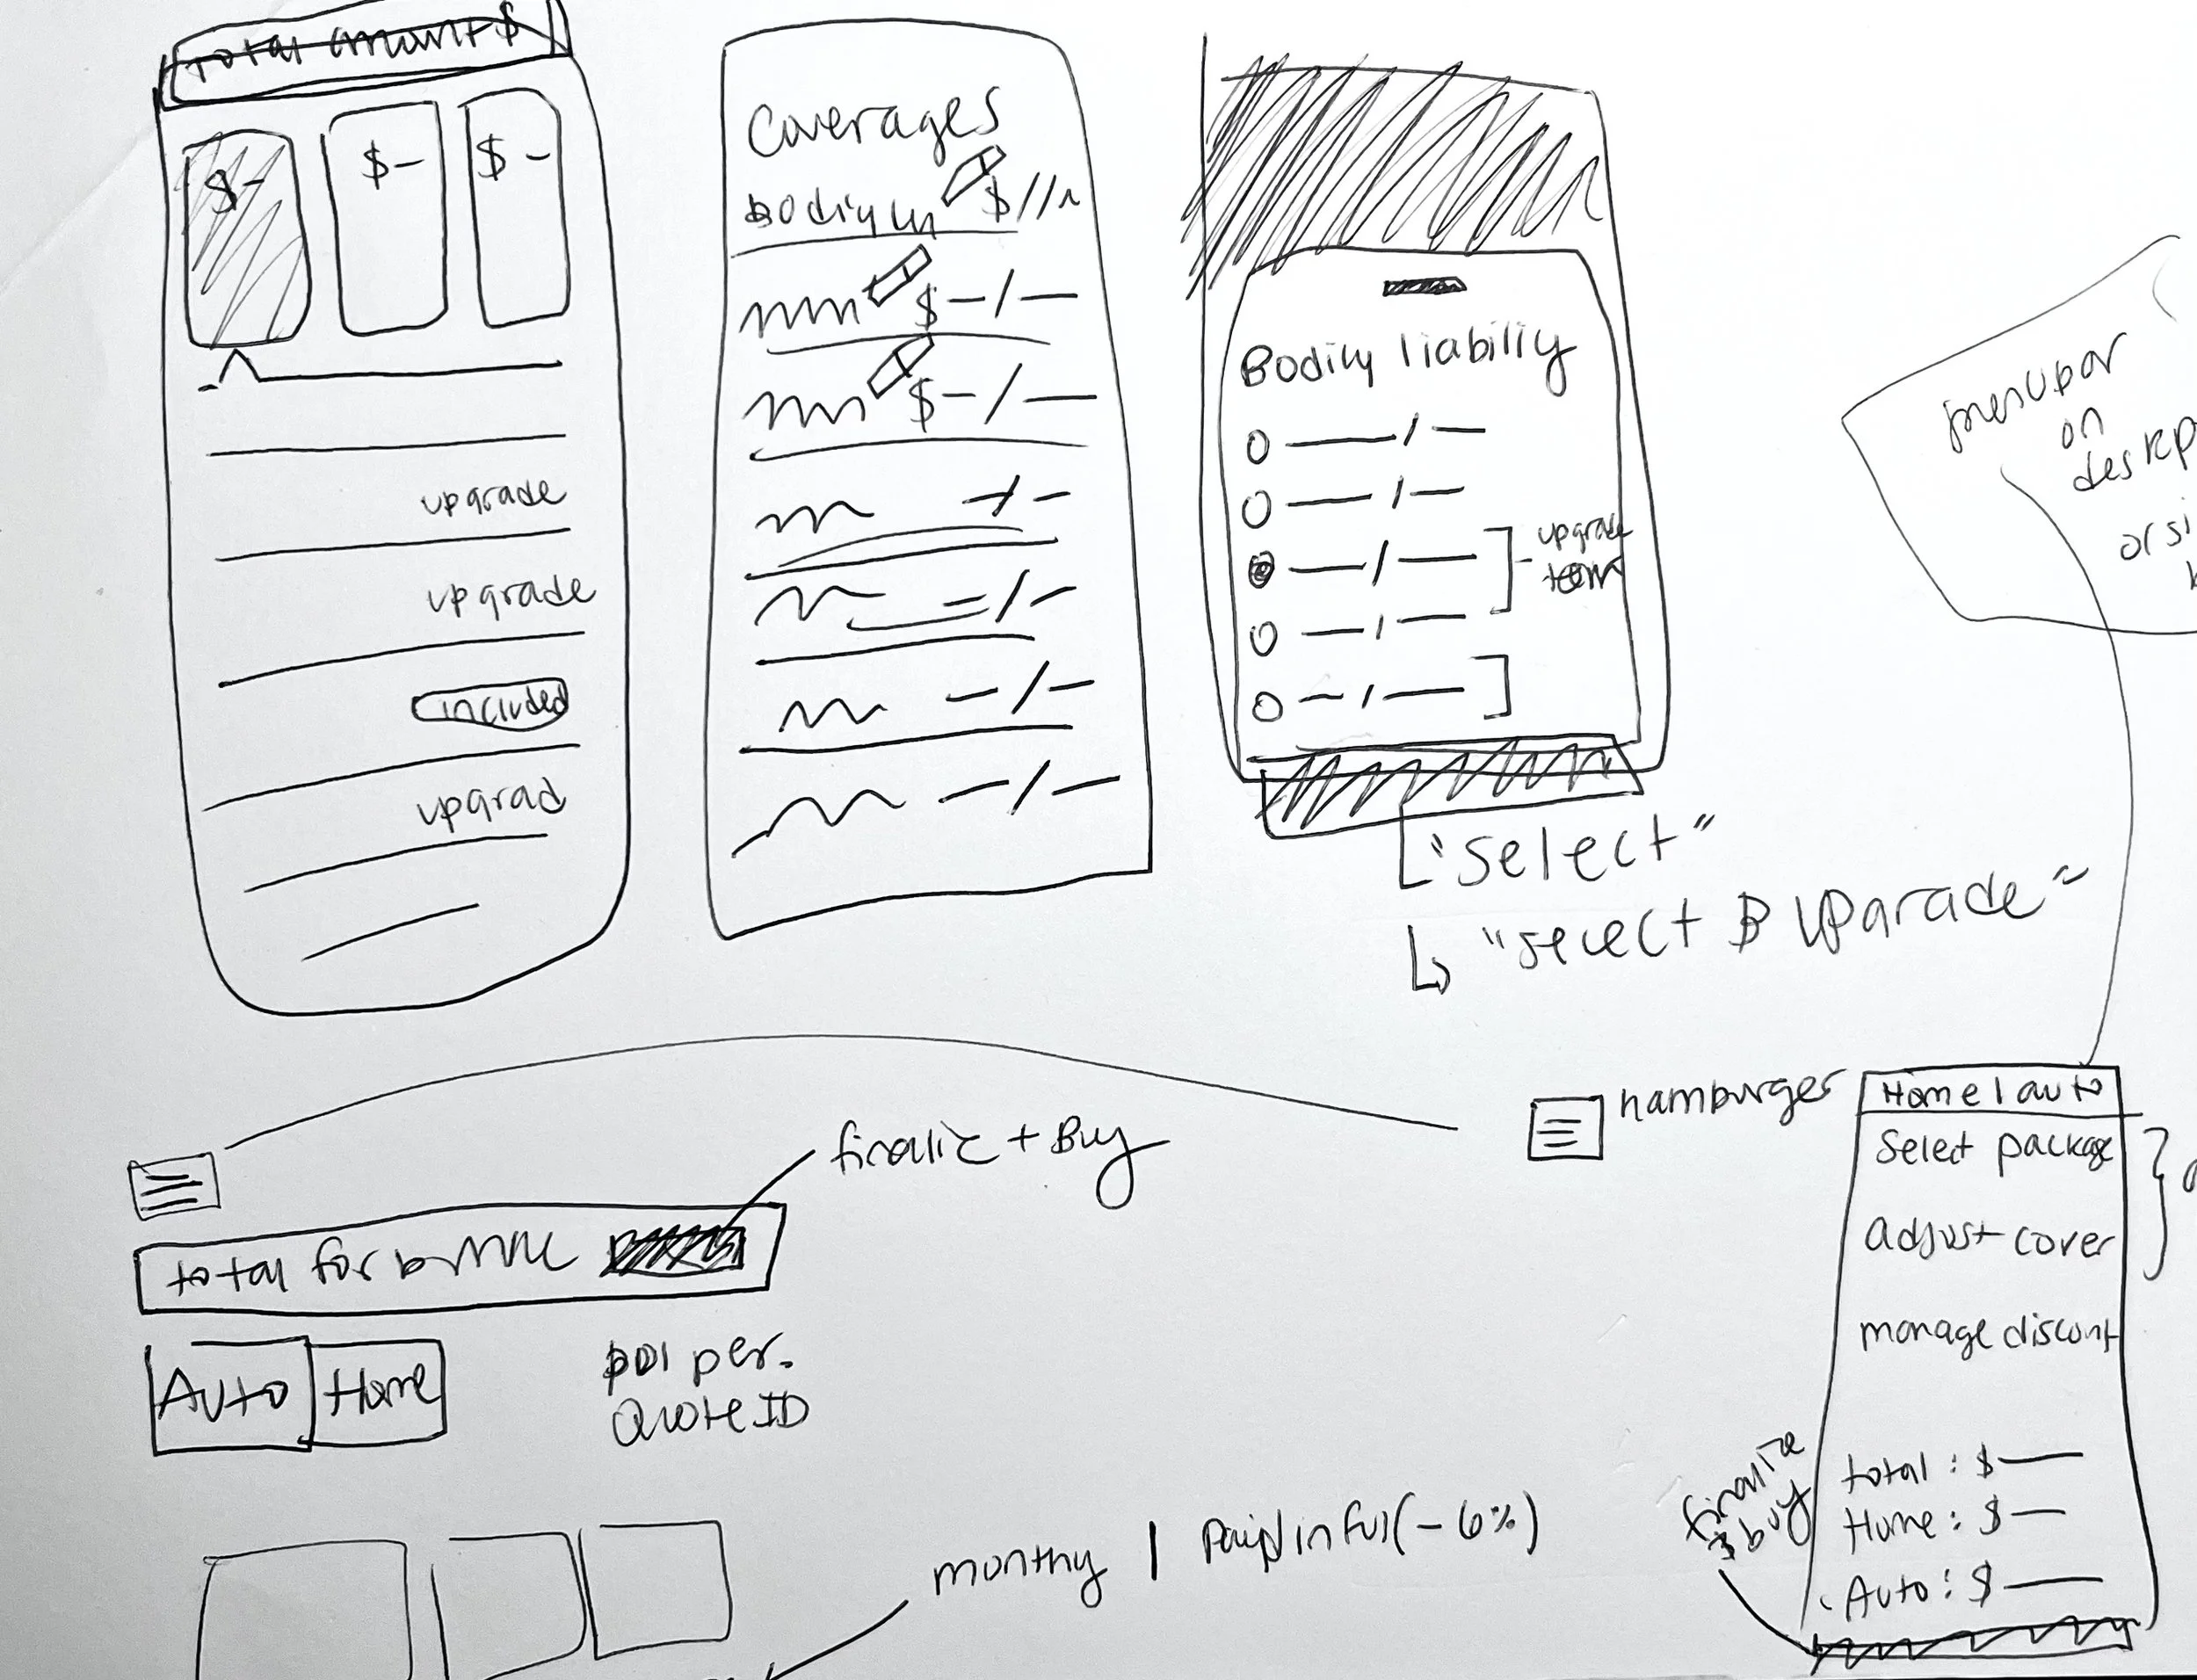 Total amount $
$-
$-
$-
upgrade
upgrade
included
upgrad
Coverages
$
$-/-
$-/-
Bodily liability
upgrade
"select"
"select $ upgrade"
on
hamburger
Home | auto
Select package
adjust cover
manage discont
total: $
Home: $
Auto: $
finalize
& buy
finalize + Buy
total for
Auto
Home
per.
Quote ID
monthy | Paid in ful (-6%)